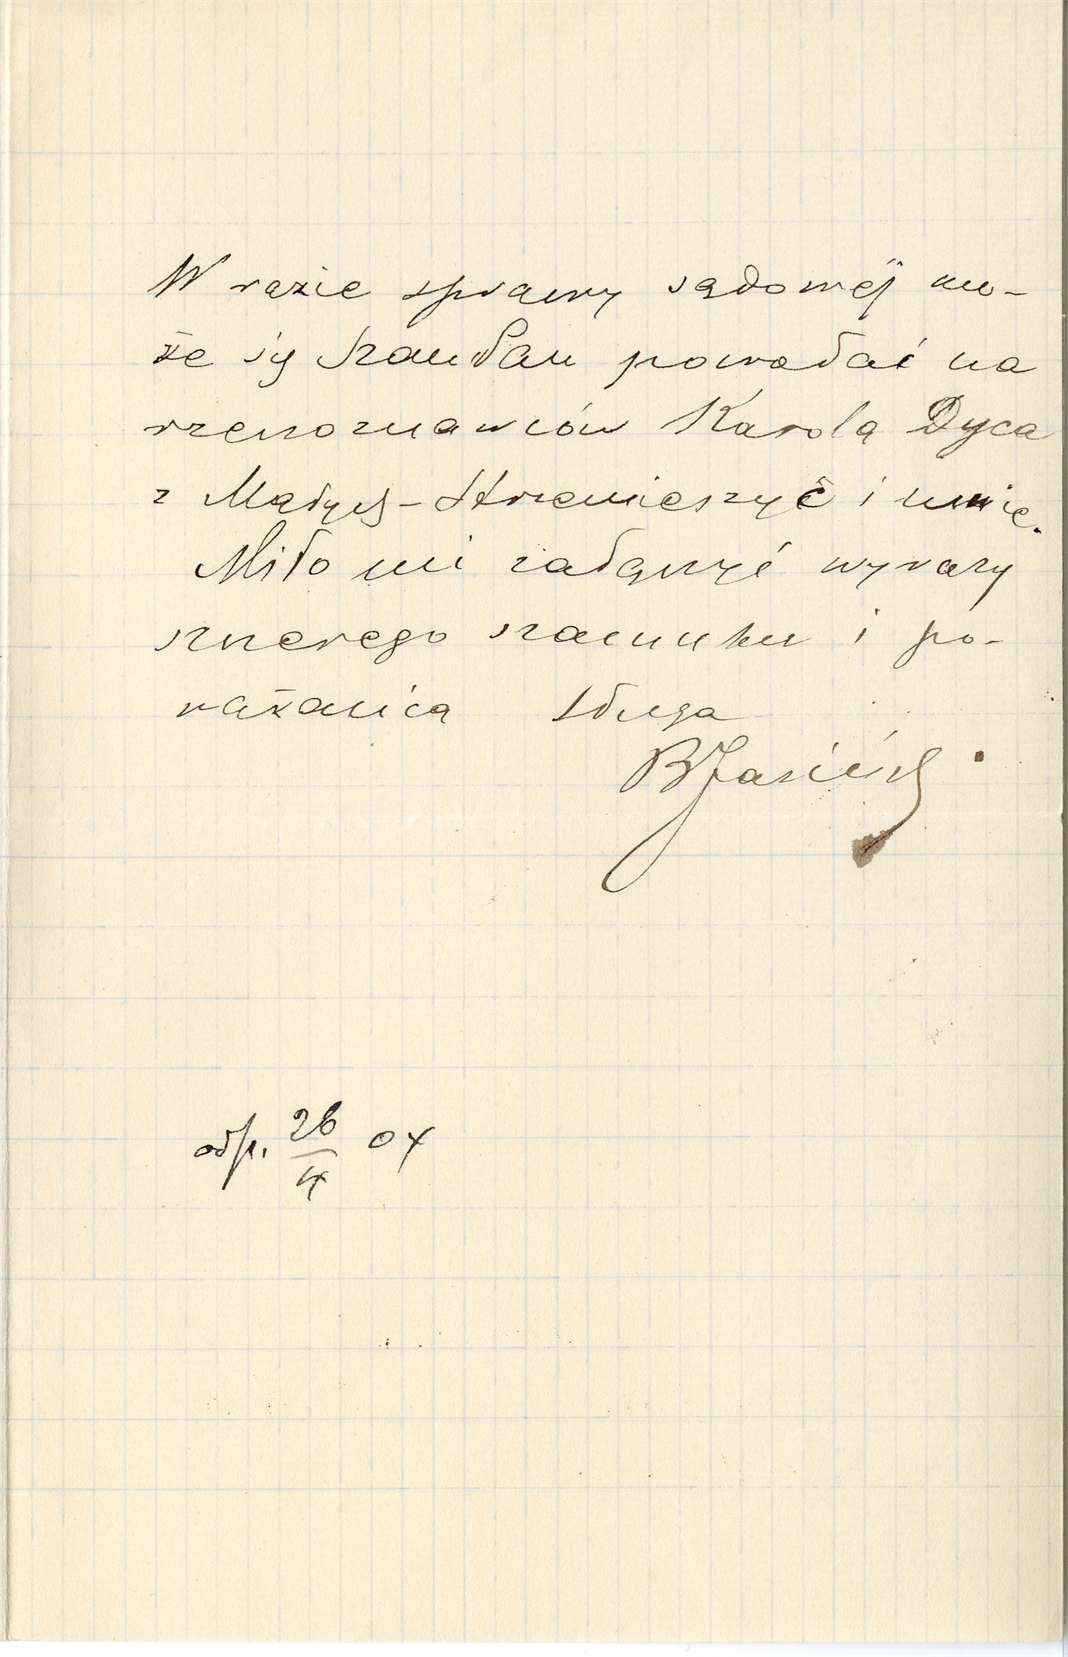 W razie sprawy sądowéj mo-
że się Szan Pan powołać na
rzeczoznawców Karola Dyca
z Małych-Strzemieszyc i mnie.
Miło mi załączyć wyrazy
szczerego szacunku i po-
ważania sługa
BJasiński
odp. 26/4 04